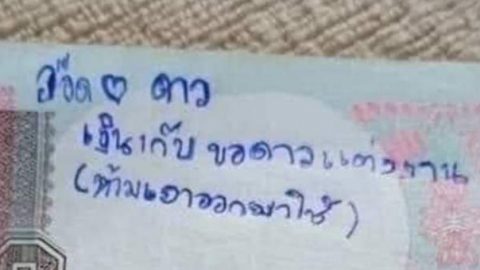 อ๊อด ♡ ดาว
เงินเก็บ ขอดาวแต่งงาน
(ห้ามเอาออกมาใช้)